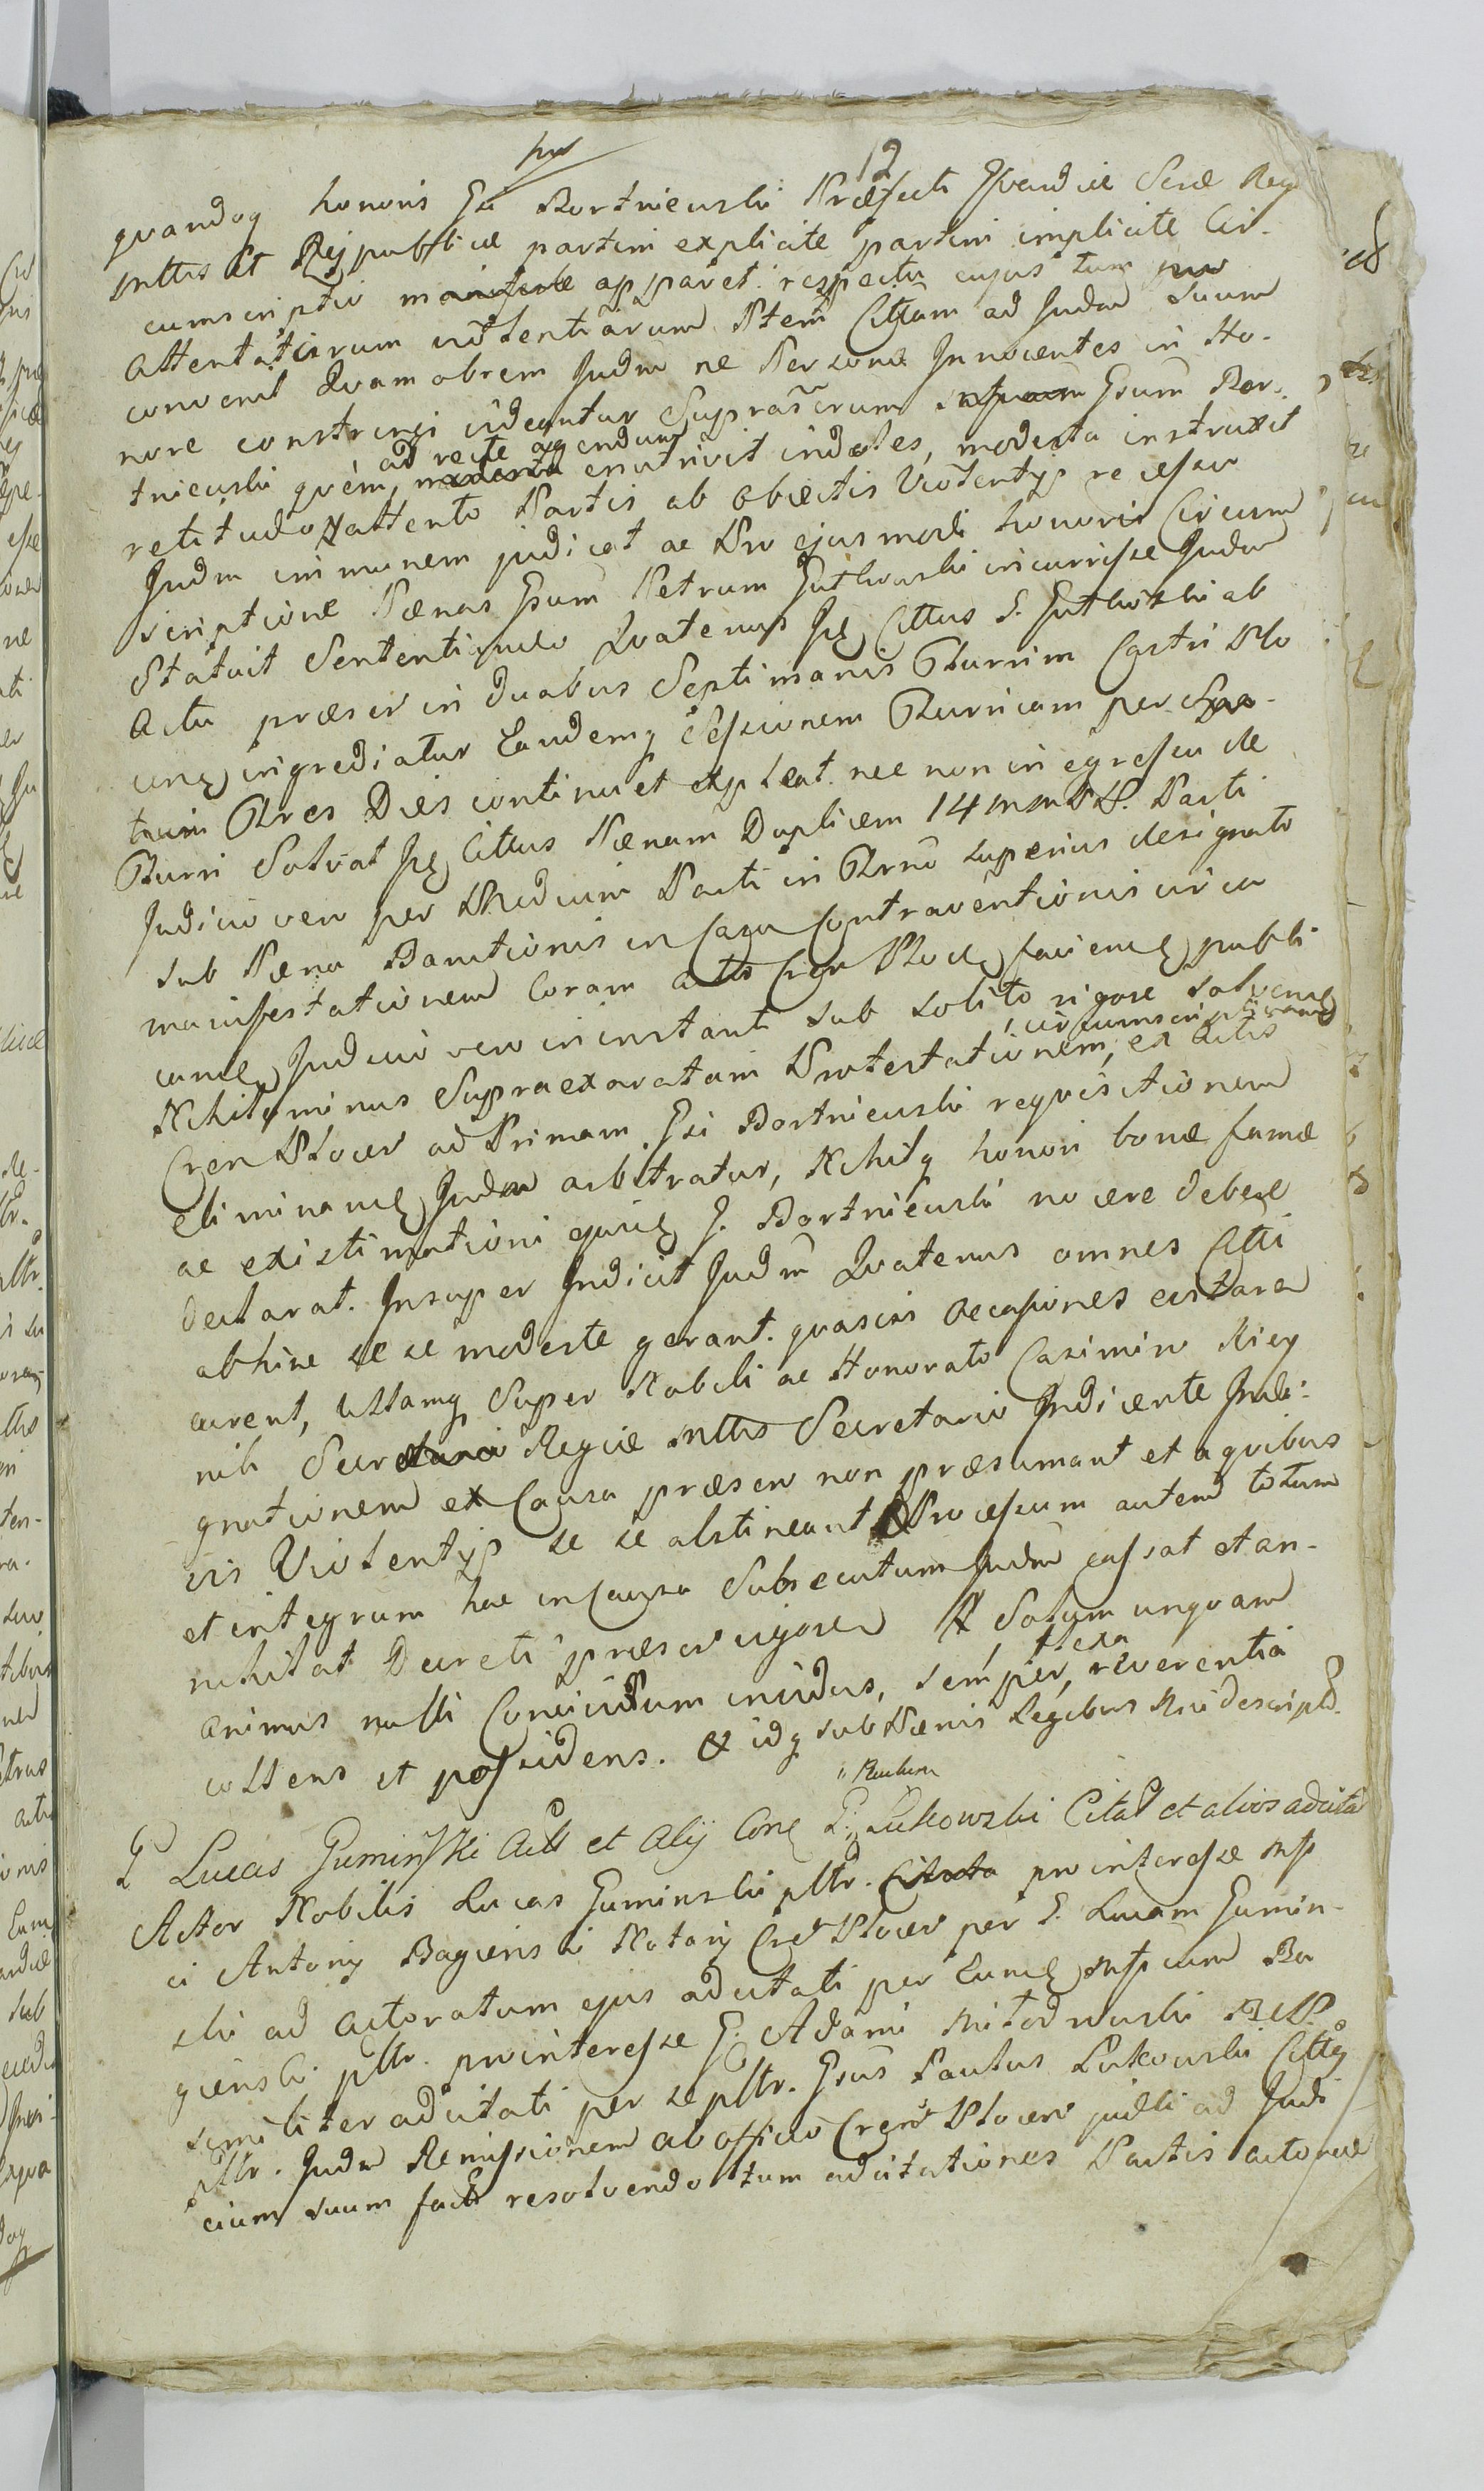 12
quandoq honoris Gsi Bortniewski Præfecti Gvardiæ Seræ Reg
Mttis et Reipublicæ partim explicite partim implicite Cir-
cumscriptio manifeste apparet. respectu cujus tum pro
attentatiorum violentiarum Ptem Cttam ad Judm suum
convenit Quamobrem Judm ne Personæ Innocentes in Ho-
nore constringi videantur Suprascrum Gsum Bor-
tniewski quem, ad recte agendum enutrivit indoles, modesta instruxit
retitudo attento Partis ab obiectis Violentys recessu
Judm immunem judicat ac Pro ejusmodi honoris Circum
scriptione Pænas Gsum Petrum Gutkowski incurrisse Judm
Statuit Sententiando Quatenus Idę Cttus G. Gutkowski ab
actu præsenti in duabus Septimanis Turrim Castri Plo
cenę ingrediatur Eandemq Sessionem Turricam per Spa-
tium Tres Dies continuet expleat. nec non in egressu de
Turri Solvat Idę Cttus Pænam Duplicem 14 mrcr PP. Parti
Judicio vero per Medium Parti in Trno superius designato
sub Pæna Bannitionis in Casu Contraventionis circa
manifestationem Coram actis Cren Plocę facienę publi
canę Judicio vero in instanti sub solito rigore solvenę
Nihilominus Supraexaratam Protestationem, circumscriptivam ex actis
Cren Plocen ad Primam Gsi Bortniewski requisitionem
eliminanę Judm arbitratur, Nihilq honori bonæ famæ
ac existimationi ejusdę G. Bortniewski nocere debere
declarat. Insuper Indicit Judm Quatenus omnes Ctti
abhinc se se modeste gerant. quasvis occasiones evitare
curent, Ullamq Super Nobili ac Honorato Casimiro
Regiæ Mttis Secretario Indicente Indi-
gnationem ex Causa præsen non præsumant et a quibus
vis Violentys se se abstineant Processum autem totum
et integrum hac in Causa Subsecutum Judm cassat et an-
nihilat Decreti præsen vigore Solum unquam
animus nulli Convicium invidus, semper, reverentia
collens et possidens. & idq sub Pænis Legibus descriptis.
G Lucas Guminski Actr et Alij Conę G. Lukowski Citat et alios adcita
Actor Nobilis Lucas Guminski pltr. pro interesse Mfi
ci Antony Bagienski Notary Cren Plocen per G. Lucam Gumin-
ski ad actoratum ejus adcitati per Eundę Mfcum Ba
gienski pltr. pro interesse G. Adami
similiter adcitati per se pltr. Gsus Paulus Lukowski Cttq
pltr. Judm Remissionem ab officio Cren Plocen judli ad Judi
cium suum factā resolvendo tum adcitationes Partis actoreæ